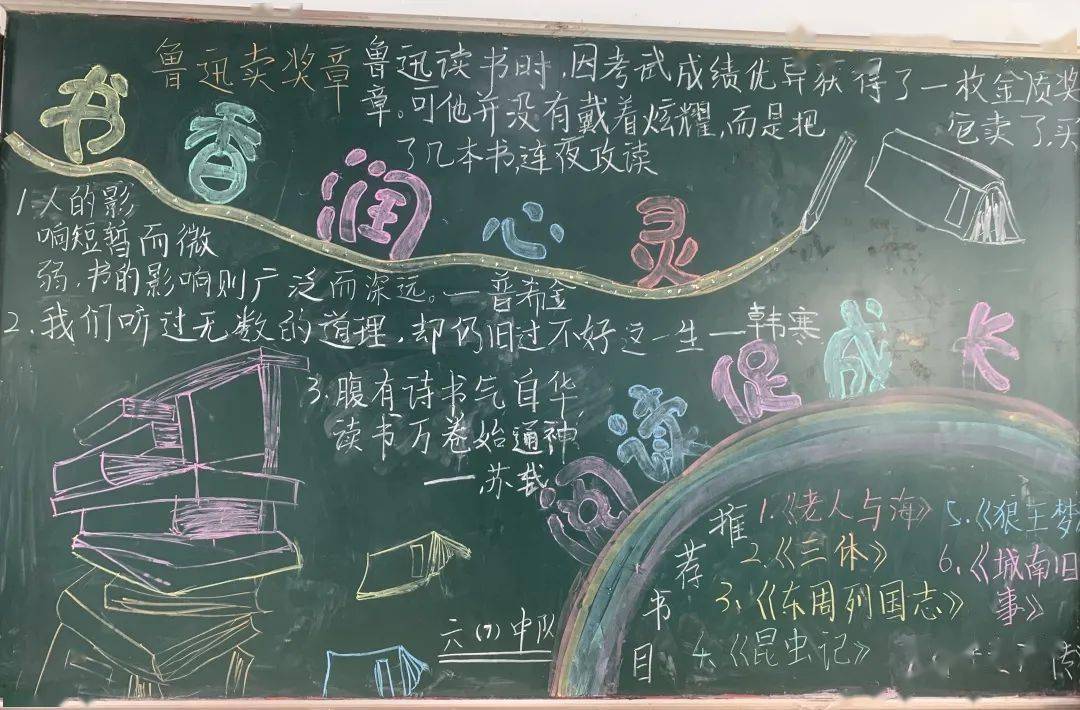 书香润心灵
鲁迅卖奖章
鲁迅读书时,因考试成绩优异获得了一枚金质奖
章。可他并没有戴着炫耀,而是把包卖了,买
了几本书,连夜攻读
1.人的影
响短暂而微
弱,书的影响则广泛而深远。—普希金
2.我们听过无数的道理,却仍旧过不好这一生—韩寒
3.腹有诗书气自华,
读书万卷始通神
—苏载
阅读促成长
六(7)中队
推荐书目
1.《老人与海》
2.《三体》
3、《东周列国志》
4.《昆虫记》
5.《狼王梦
6.《城南旧
事》